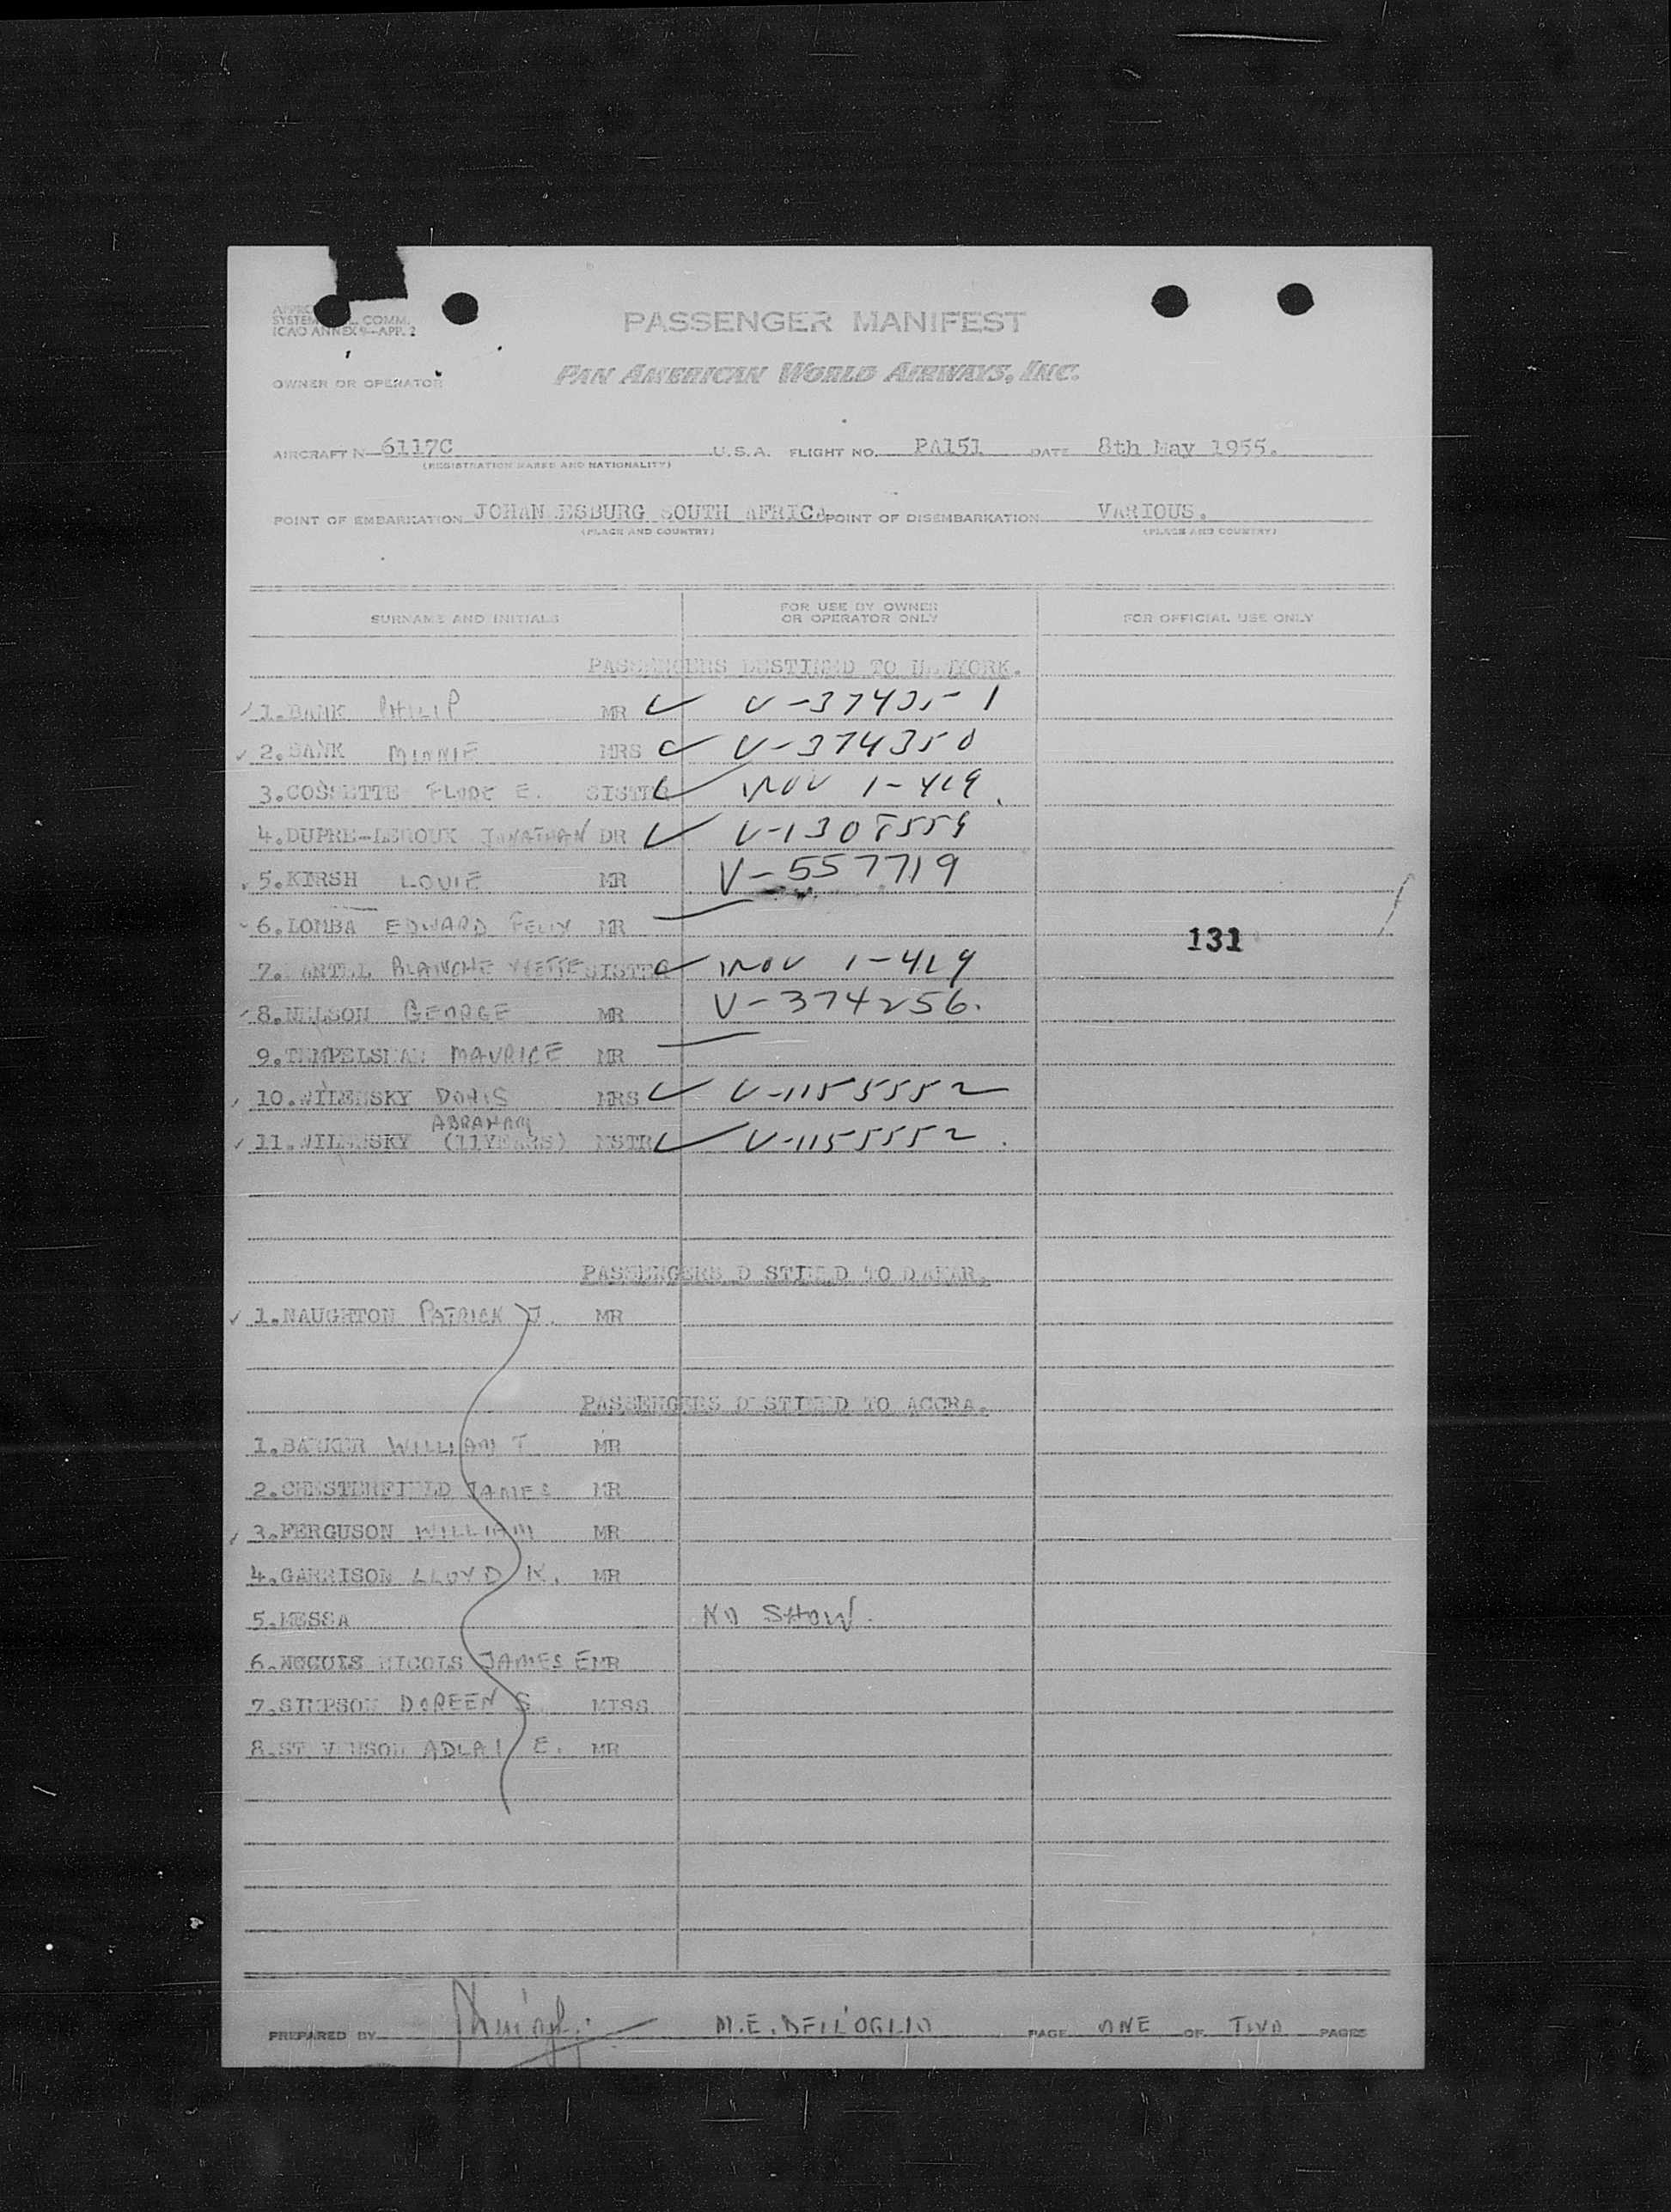 SYSTEM COMM.
ICAO ANNEX 9—APP. 2
PASSENGER MANIFEST
OWNER OR OPERATOR PAN AMERICAN WORLD AIRWAYS, INC.
AIRCRAFT N 6117C U.S.A. FLIGHT NO. PA151 DATE 8th May 1955.
(REGISTRATION MARKS AND NATIONALITY)
POINT OF EMBARKATION JOHAN ESBURG SOUTH AFRICA POINT OF DISEMBARKATION VARIOUS.
(PLACE AND COUNTRY) (PLACE AND COUNTRY)
SURNAME AND INITIALS FOR USE BY OWNER OR OPERATOR ONLY FOR OFFICIAL USE ONLY
PASSENGERS DESTINED TO NEWYORK.
1.BANK PHILIP MR V-374351
2.BANK MINNIE MRS V-374350
3.COSSETTE E. SISTER 1-419
4.DUPRE-LEROUX JONATHAN DR V-1308559
5.KIRSH LOUIE MR V-557719
6.LOMBA EDWARD FELIX MR
131
7. BLANCHE YVETTE SISTER 1-419
8.NELSON GEORGE MR V-374256.
9.TEMPELSMAN MAURICE MR
10.WILENSKY DORIS MRS V-1155552
ABRAHAM
11.WILENSKY (11YEARS) MSTR V-1155552.
PASSENGERS D STINED TO DAKAR.
1.NAUGHTON PATRICK J. MR
PASSENGERS D STINED TO ACCRA.
1.BARKER WILLIAM T MR
2.CHESTERFIELD JAMES MR
3.FERGUSON WILLIAM MR
4.GARRISON LLOYD K. MR
5.MESSA NO SHOW.
6. NICOLS JAMES E MR
7.SIMPSON DOREEN S. MISS
8.ST VENSON ADLAI E. MR
PREPARED BY M.E. DELL'OGLIO PAGE ONE OF TWO PAGES